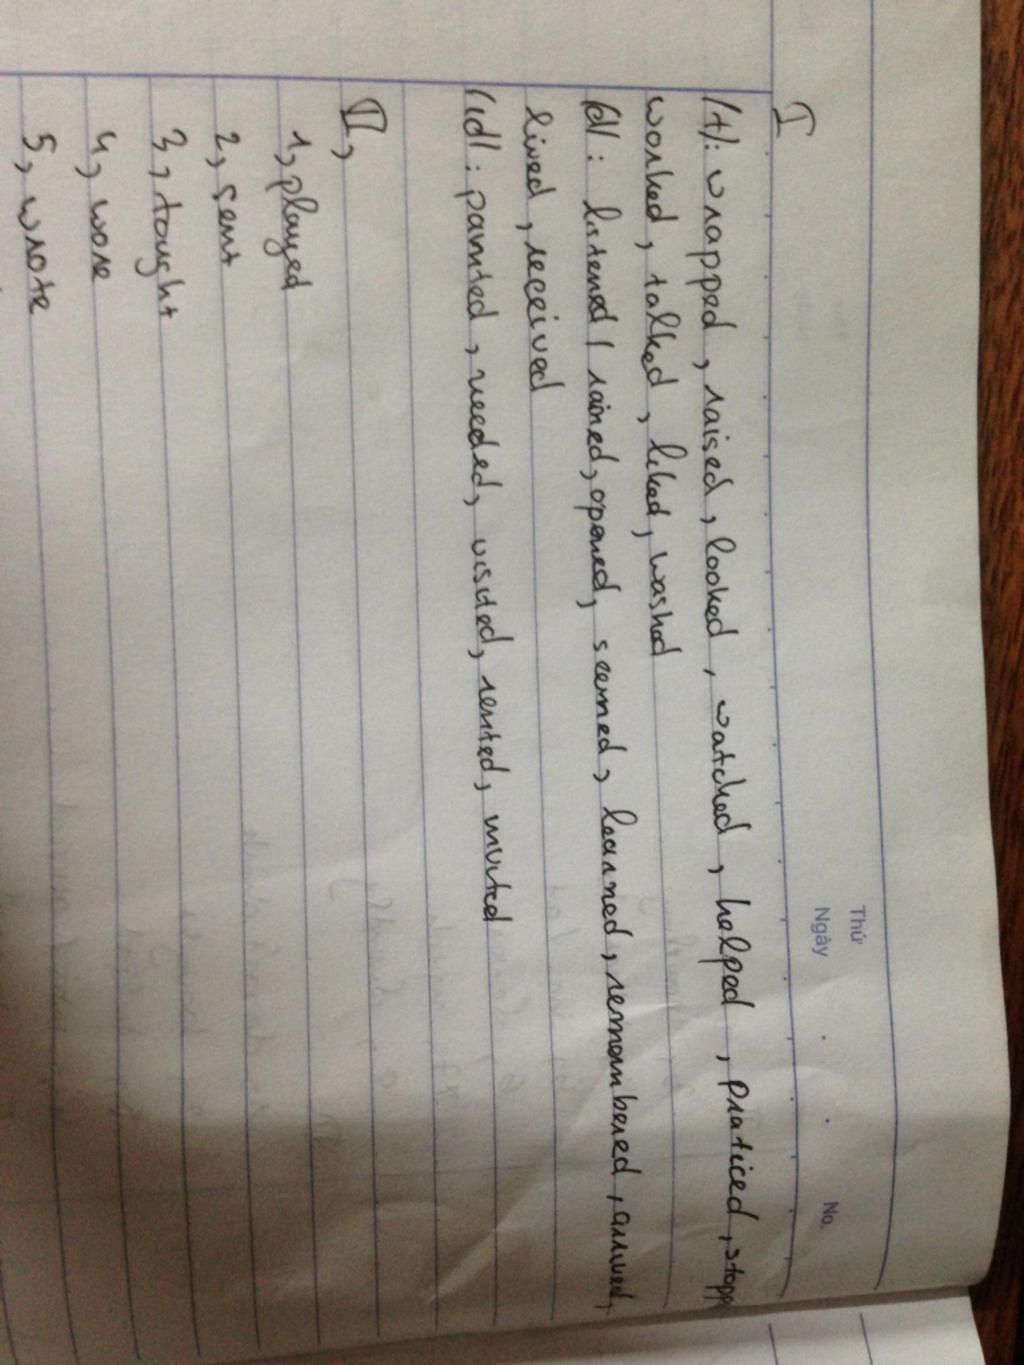 Thứ
Ngày
No.
I
/t/: wrapped, raised, looked, watched, helped, praticed, stopp
worked, talked, liked, washed
/d/: listened, rained, opened, seemed, learned, remembered, arrived,
lived, received
/id/: painted, needed, visited, rented, invited
II,
1, played
2, sent
3, tought
4, wore
5, wrote